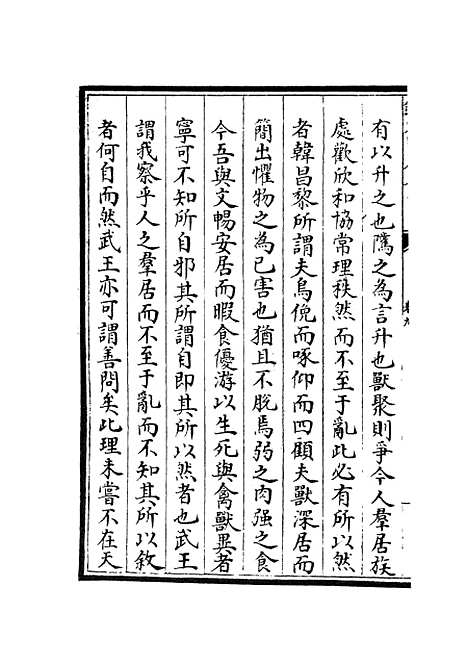 有以升之也隲之為言升也獸聚則爭今人羣居族
處歡欣和協常理秩然而不至于亂此必有所以然
者韓昌黎所謂夫鳥俛而啄仰而四顧夫獸深居而
簡出懼物之為己害也猶且不脫焉弱之肉强之食
今吾與文暢安居而暇食優游以生死與禽獸異者
寧可不知所自邪其所謂自即其所以然者也武王
謂我察乎人之羣居而不至于亂而不知其所以敘
者何自而然武王亦可謂善問矣此理未嘗不在天